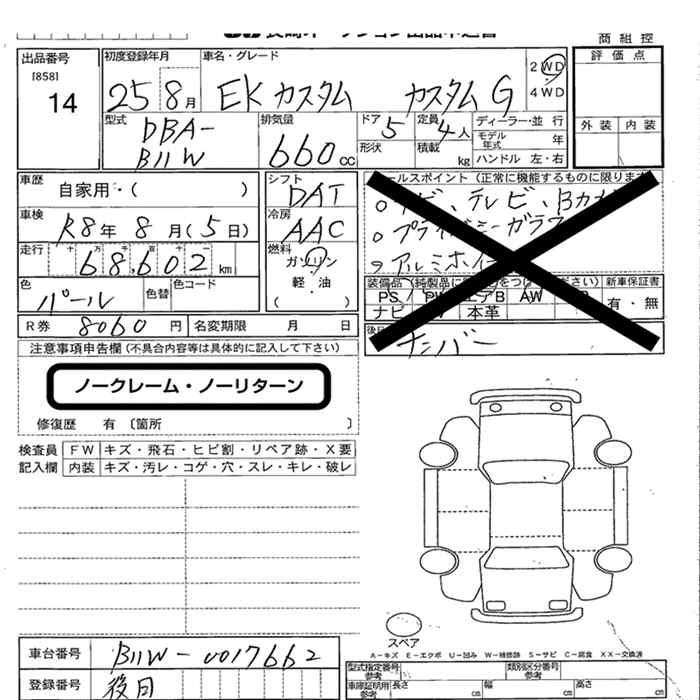 商 組 控
出品番号
[858]
14
初度登録年月
25 8月
車名・グレード
EK カスタム カスタム G
2WD
4WD
評 価 点
外 装 内 装
型式
DBA-
B11W
排気量
660 cc
ドア 5
形状
定員 4人
積載 kg
ディーラー・並 行
モデル年式 年
ハンドル 左・右
車歴
自家用・( )
車検
R8年 8月(5日)
走行
十 万 千 百 十 一
68,602 km
色
パール
色替
色コード
シフト
DAT
冷房
AAC
燃料
ガソリン
軽・油
( )
R券 8060 円
名変期限 月 日
セールスポイント (正常に機能するものに限ります)
ナビ、テレビ、Bカメ
プライバシーガラス
アルミホイ
装備品 (純製品に をつけ ださい)
新車保証書
PS PW エアB AW
ナビ 本革
有・無
後日
ナンバー
注意事項申告欄(不具合内容等は具体的に記入して下さい)
ノークレーム・ノーリターン
修復歴 有 〔箇所 〕
検査員
記入欄
FW キズ・飛石・ヒビ割・リペア跡・X要
内装 キズ・汚レ・コゲ・穴・スレ・キレ・破レ
スペア
A-キズ E-エクボ U-凹み W-補修跡 S-サビ C-腐食 XX-交換済
車台番号
B11W-0017662
登録番号
後日
型式指定番号
参考
類別区分番号
参考
車庫証明用
参考
長さ cm 幅 cm 高さ cm